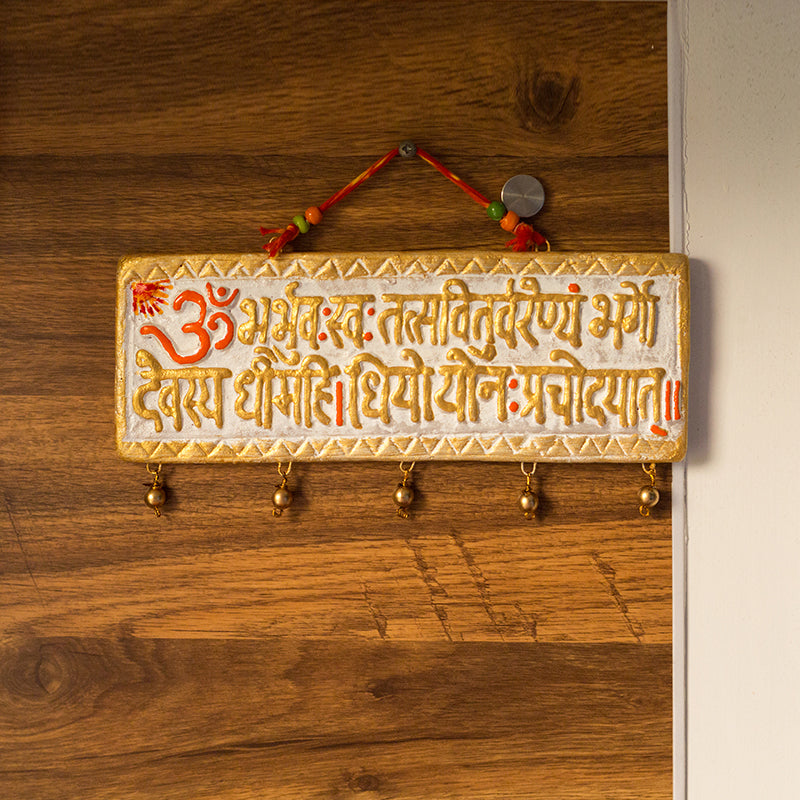 ॐ भर्भुवःस्वः तत्सवितुर्वरेण्यं भर्गो
देवस्य धीमहि।धियो योनःप्रचोदयात्॥